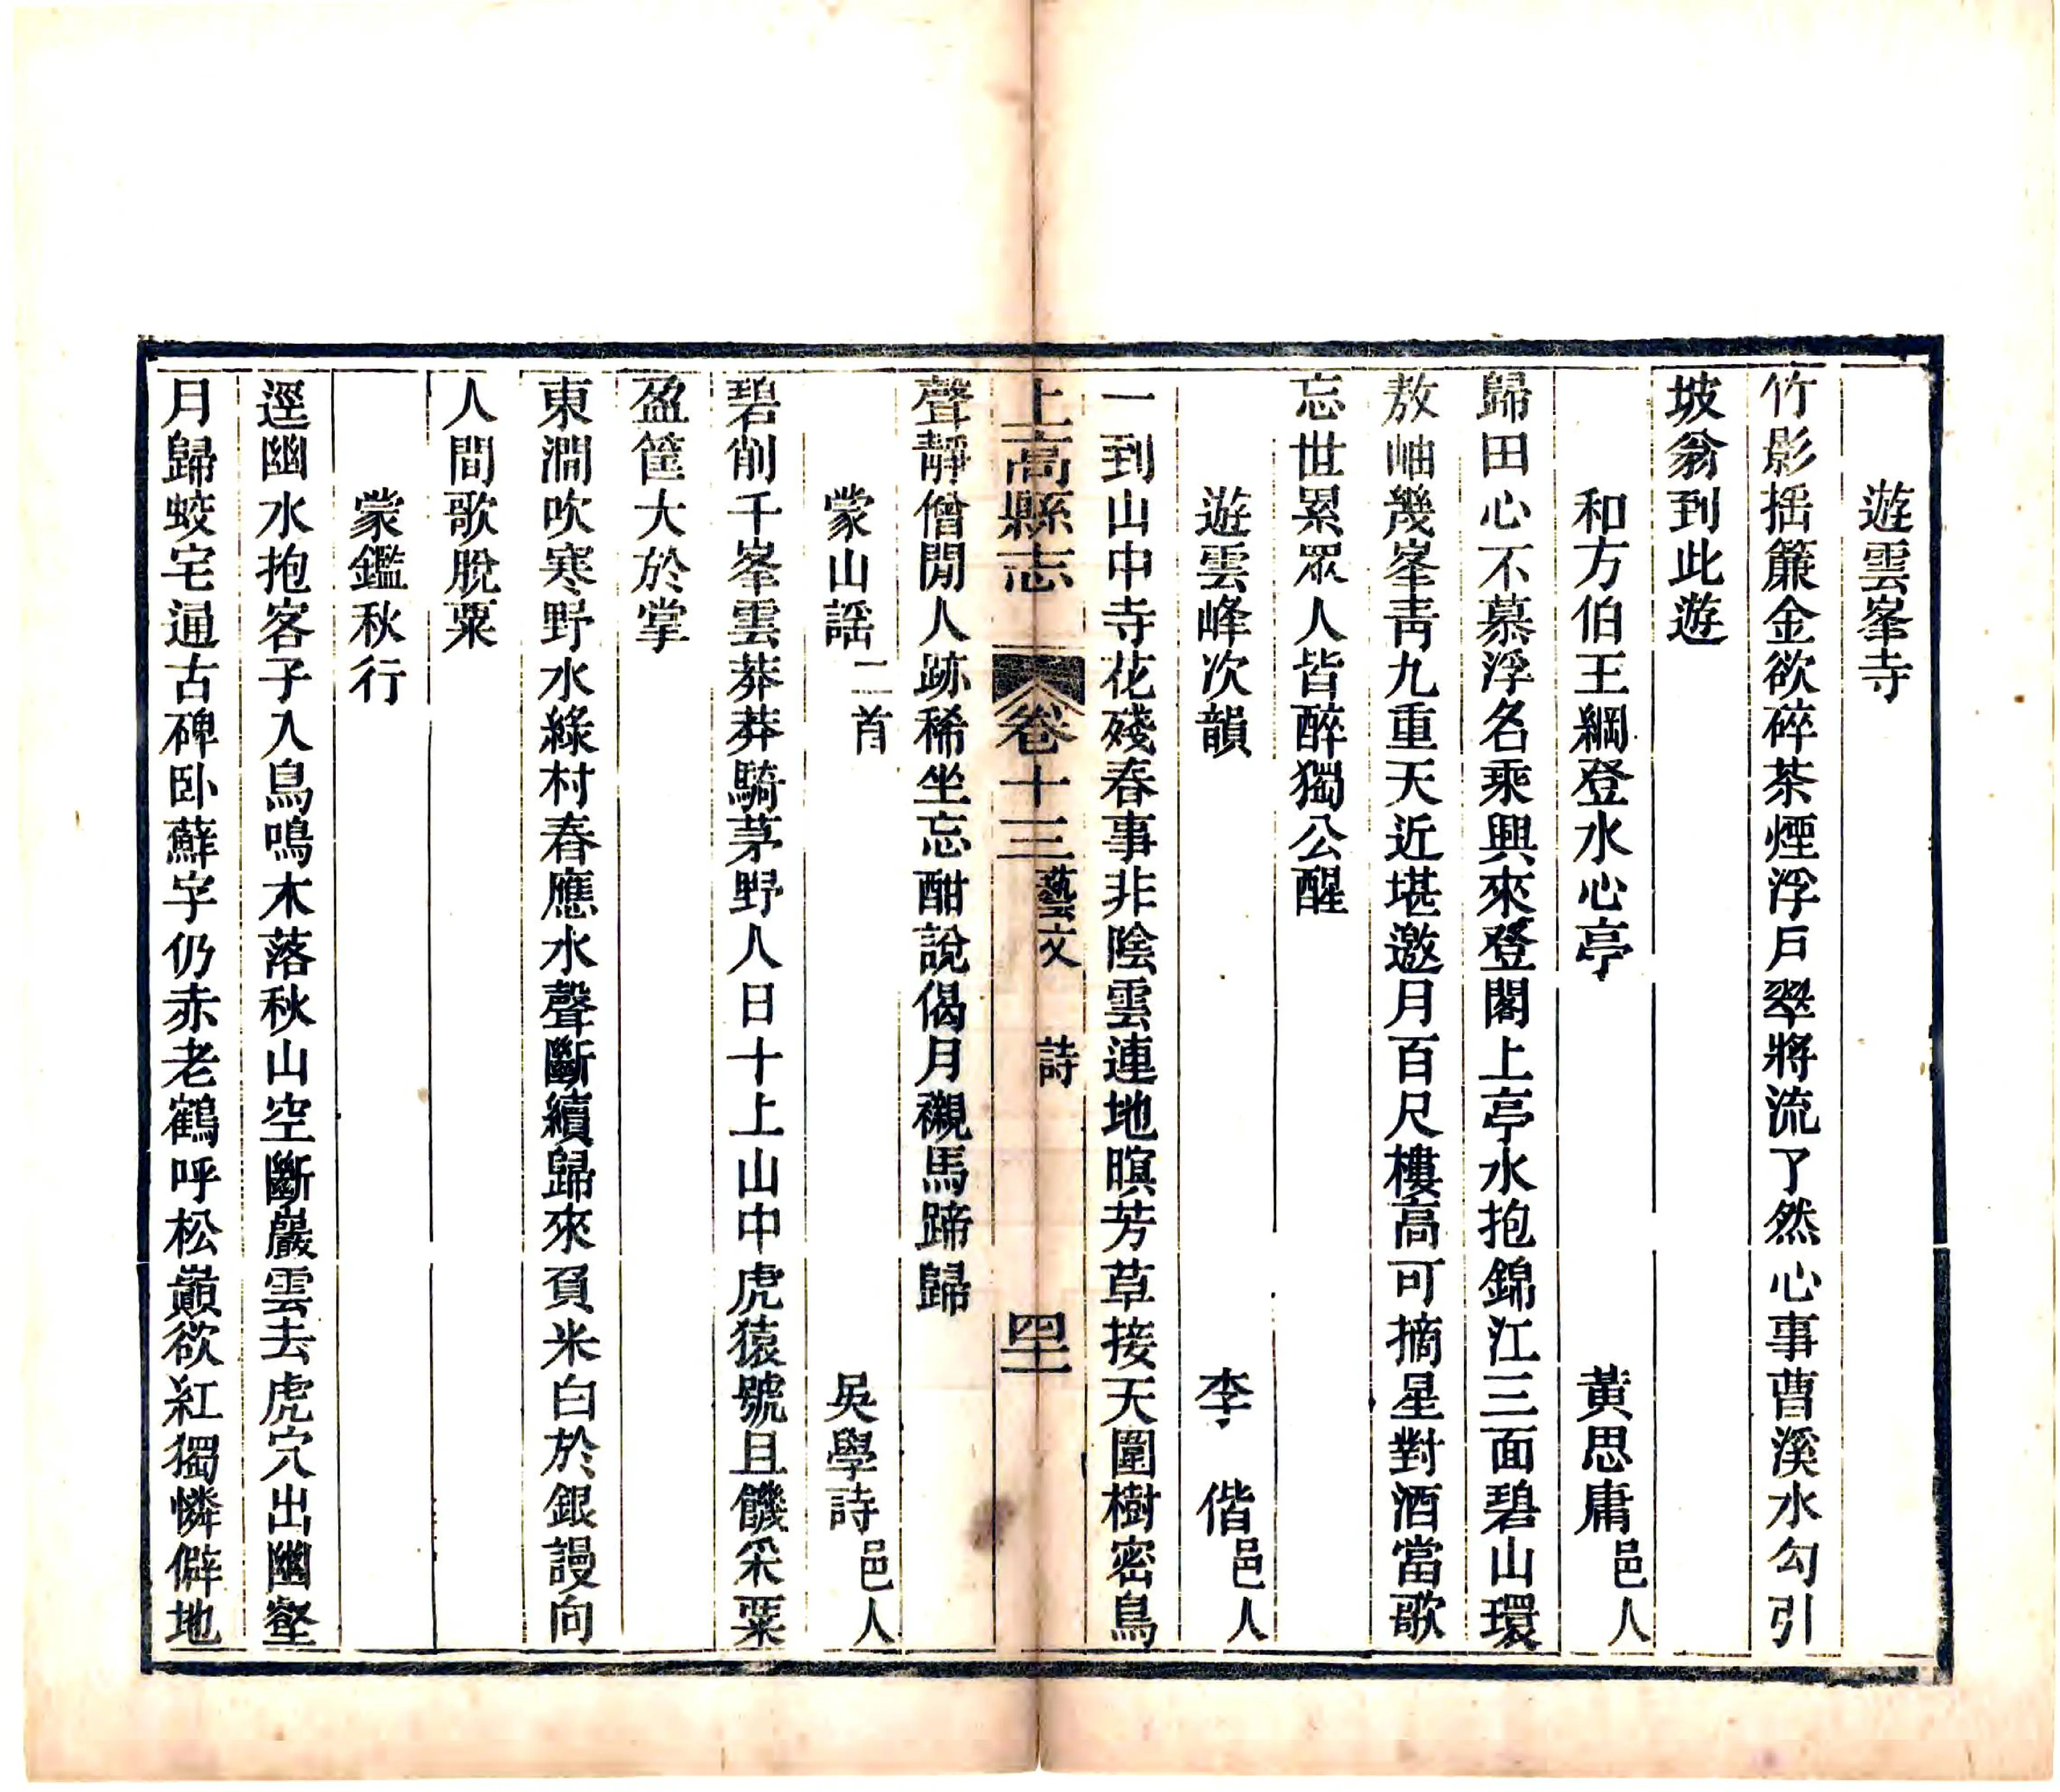 遊雲峯寺
竹影搖簾金欲碎茶煙浮戶翠將流了然心事曹溪水勾引
坡翁到此遊
和方伯王綱登水心亭 黃思庸邑人
歸田心不慕浮名乘興來登閣上亭水抱錦江三面碧山環
敖岫幾峯靑九重天近堪邀月百尺樓高可摘星對酒當歌
忘世累眾人皆醉獨公醒
遊雲峰次韻 李 偕邑人
一到山中寺花殘春事非陰雲連地暝芳草接天圍樹密鳥
上高縣志 卷十三 藝文 詩 四十一
聲靜僧閒人跡稀坐忘酣說偈月襯馬蹄歸
蒙山謡二首 吳學詩邑人
碧削千峯雲莽莽騎茅野人日十上山中虎猿號且饑采粟
盈筐大於掌
東澗吹寒野水綠村舂應水聲斷續歸來負米白於銀謾向
人間歌脫粟
蒙鑑秋行
逕幽水抱客子入鳥鳴木落秋山空斷巖雲去虎穴出幽壑
月歸蛟宅通古碑卧蘚字仍赤老鶴呼松巔欲紅獨憐僻地